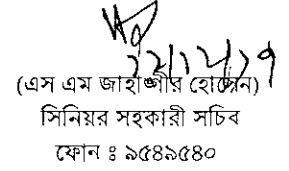 (এস এম জাহাঙ্গীর হোসেন)
সিনিয়র সহকারী সচিব
ফোন ঃ ৯৫৪৯৫৪০